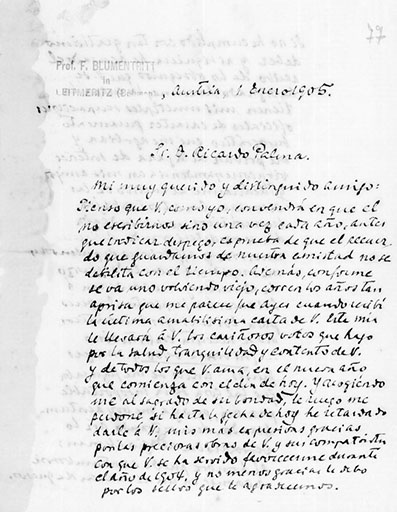 77
Prof. F. BLUMENTRITT
in
LEITMERITZ (Böhmen)
, Austria, 1 Enero 1905.
Sr. D. Ricardo Palma.
Mi muy querido y distinguido amigo:
Pienso que V., como yo, convendrá en que el
no escribirnos sino una vez cada año, antes
que indicar despego, es prueba de que el recuer-
do que guardamos de nuestra amistad no se
debilita con el tiempo. Además, conforme
se va uno volviendo viejo, corren los años tan
aprisa que me parece fue ayer cuando recibí
la última amabilísima carta de V. Esta mía
le llevará á V. los cariñosos votos que hago
por la salud, tranquilidad y contento de V.
y de todos los que V. ama, en el nuevo año
que comienza con el día de hoy. Y acogiendo
me al sagrado de su bondad, le ruego me
perdone si hasta la fecha de hoy he retardado
darle á V. mis más expresivas gracias
por las preciosas obras de V. y sus compatriotas
con que V. se ha servido favorecerme durante
el año de 1904, y no menos gracias le debo
por los sellos que le agradecemos.